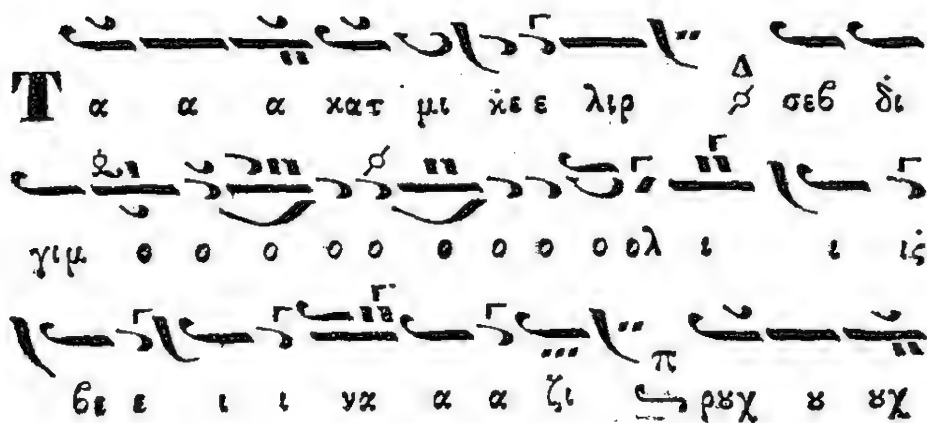 Τ α α α κατ μι κ̇ε ε λιρ Δ σεβ δ̇ι
γιμ ο ο ο ο ο ο ο ο ο ολ ι ι ις̇
βε ε ι ι να α α ζι π ρȣχ ȣ ȣχ